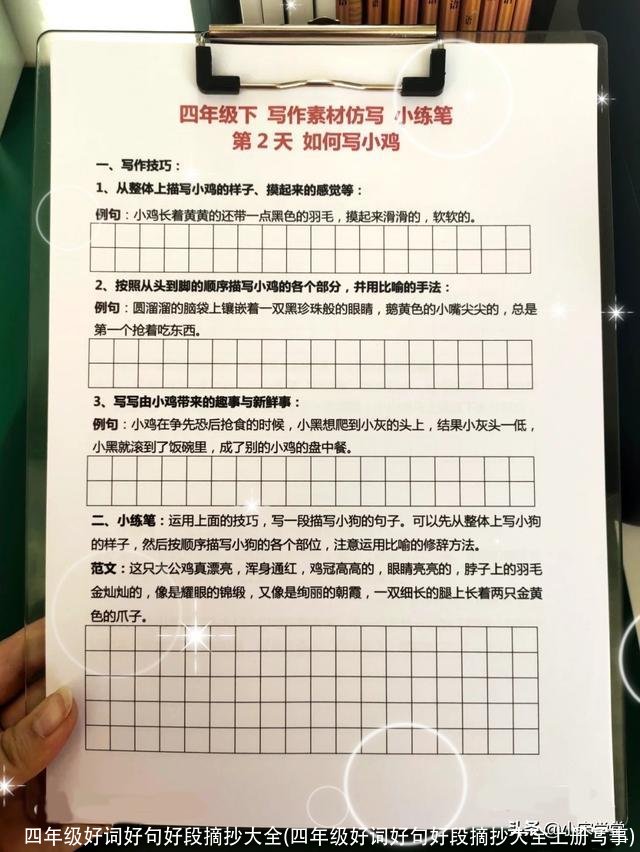 四年级下 写作素材仿写 小练笔
第2天 如何写小鸡
一、写作技巧：
1、从整体上描写小鸡的样子、摸起来的感觉等：
例句：小鸡长着黄黄的还带一点黑色的羽毛，摸起来滑滑的，软软的。
2、按照从头到脚的顺序描写小鸡的各个部分，并用比喻的手法：
例句：圆溜溜的脑袋上镶嵌着一双黑珍珠般的眼睛，鹅黄色的小嘴尖尖的，总是
第一个抢着吃东西。
3、写写由小鸡带来的趣事与新鲜事：
例句：小鸡在争先恐后抢食的时候，小黑想爬到小灰的头上，结果小灰头一低，
小黑就滚到了饭碗里，成了别的小鸡的盘中餐。
二、小练笔：运用上面的技巧，写一段描写小狗的句子。可以先从整体上写小狗
的样子，然后按顺序描写小狗的各个部位，注意运用比喻的修辞方法。
范文：这只大公鸡真漂亮，浑身通红，鸡冠高高的，眼睛亮亮的，脖子上的羽毛
金灿灿的，像是耀眼的锦缎，又像是绚丽的朝霞，一双细长的腿上长着两只金黄
色的爪子。
头条@小宋学堂
四年级好词好句好段摘抄大全(四年级好词好句好段摘抄大全上册写事)